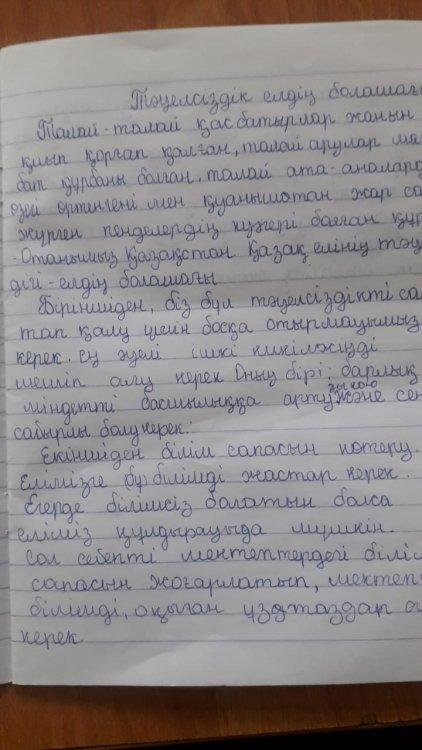 Тәуелсіздік елдің болашағы
Талай-талай қас батырлар жанын
қиып қорғап қалған, талай арулар ма
бат құрбаны болған, талай ата-аналард
өзегі өртенгені мен қуанышотан жар са
жүрген пенделердің күжегі болған құр
-Отанымыз Қазақстан. Қазақ елінің тәу
дігі-елдің болашағы
Біріншіден, біз бұл тәуелсіздікті са
тап қалу үшін босқа отырмауымыз
керек. Ең әуелі ішкі кикілжіңді
шешіп алу керек Оның бірі: барлық
міндетті басшылыққа арту және сен
сабырлы болу керек.
Екіншіден білім сапасын көтеру.
Елімізге бұ білімді жастар керек.
Егерде білімсіз болатын болса
еліміз құлдырауыда мүмкін.
Сол себепті мектептердегі білім
сапасын жоғарлатып, мектеп
білімді, оқыған ұзтаздар
керек.